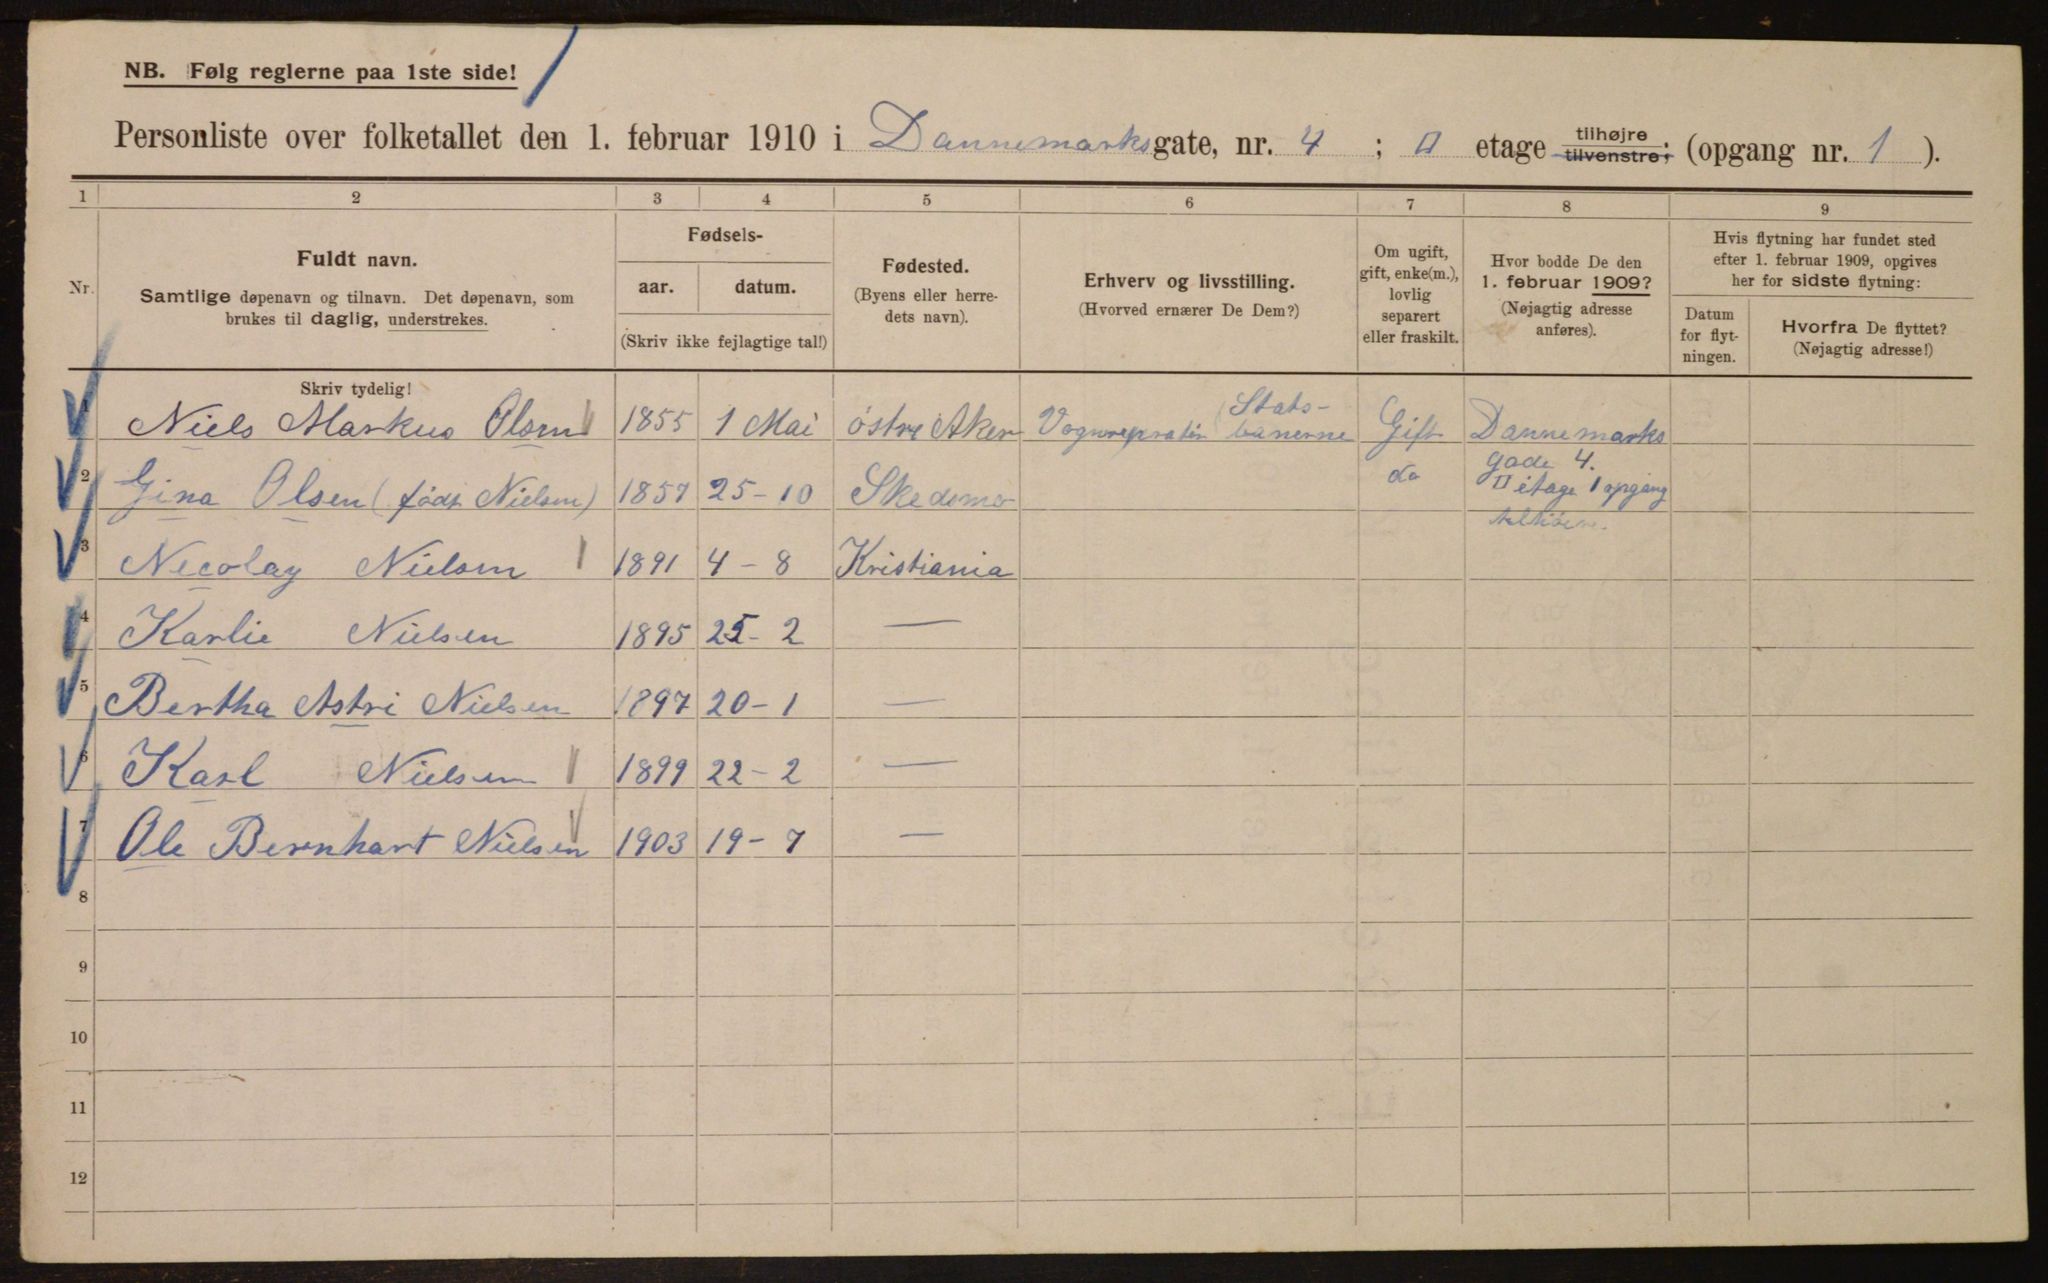 NB. Følg reglerne paa 1ste side!
Personliste over folketallet den 1. februar 1910 i Dannemarksgate, nr. 4 ; II etage tilhøjre tilvenstre; (opgang nr. 1 ).
1 2 3 4 5 6 7 8 9
Nr.
Fuldt navn.
Samtlige døpenavn og tilnavn. Det døpenavn, som
brukes til daglig, understrekes.
Skriv tydelig!
Fødsels-
aar. datum.
(Skriv ikke fejlagtige tal!)
Fødested.
(Byens eller herre-
dets navn).
Erhverv og livsstilling.
(Hvorved ernærer De Dem?)
Om ugift,
gift, enke(m.),
lovlig
separert
eller fraskilt.
Hvor bodde De den
1. februar 1909?
(Nøjagtig adresse
anføres).
Hvis flytning har fundet sted
efter 1. februar 1909, opgives
her for sidste flytning:
Datum
for flyt-
ningen.
Hvorfra De flyttet?
(Nøjagtig adresse!)
1 Niels Markus Olsen 1855 1 Mai östre Aker Stats-banerne Gift Dannemarks
gade 4.
II etage 1 opgang
2 Gina Olsen (födt Nielsen) 1857 25-10 Skedsmo do
3 Necolay Nielsen 1891 4-8 Kristiania
4 Karlie Nielsen 1895 25-2 —
5 Bertha Astri Nielsen 1897 20-1 —
6 Karl Nielsen 1899 22-2 —
7 Ole Bernhart Nielsen 1903 19-7 —
8
9
10
11
12